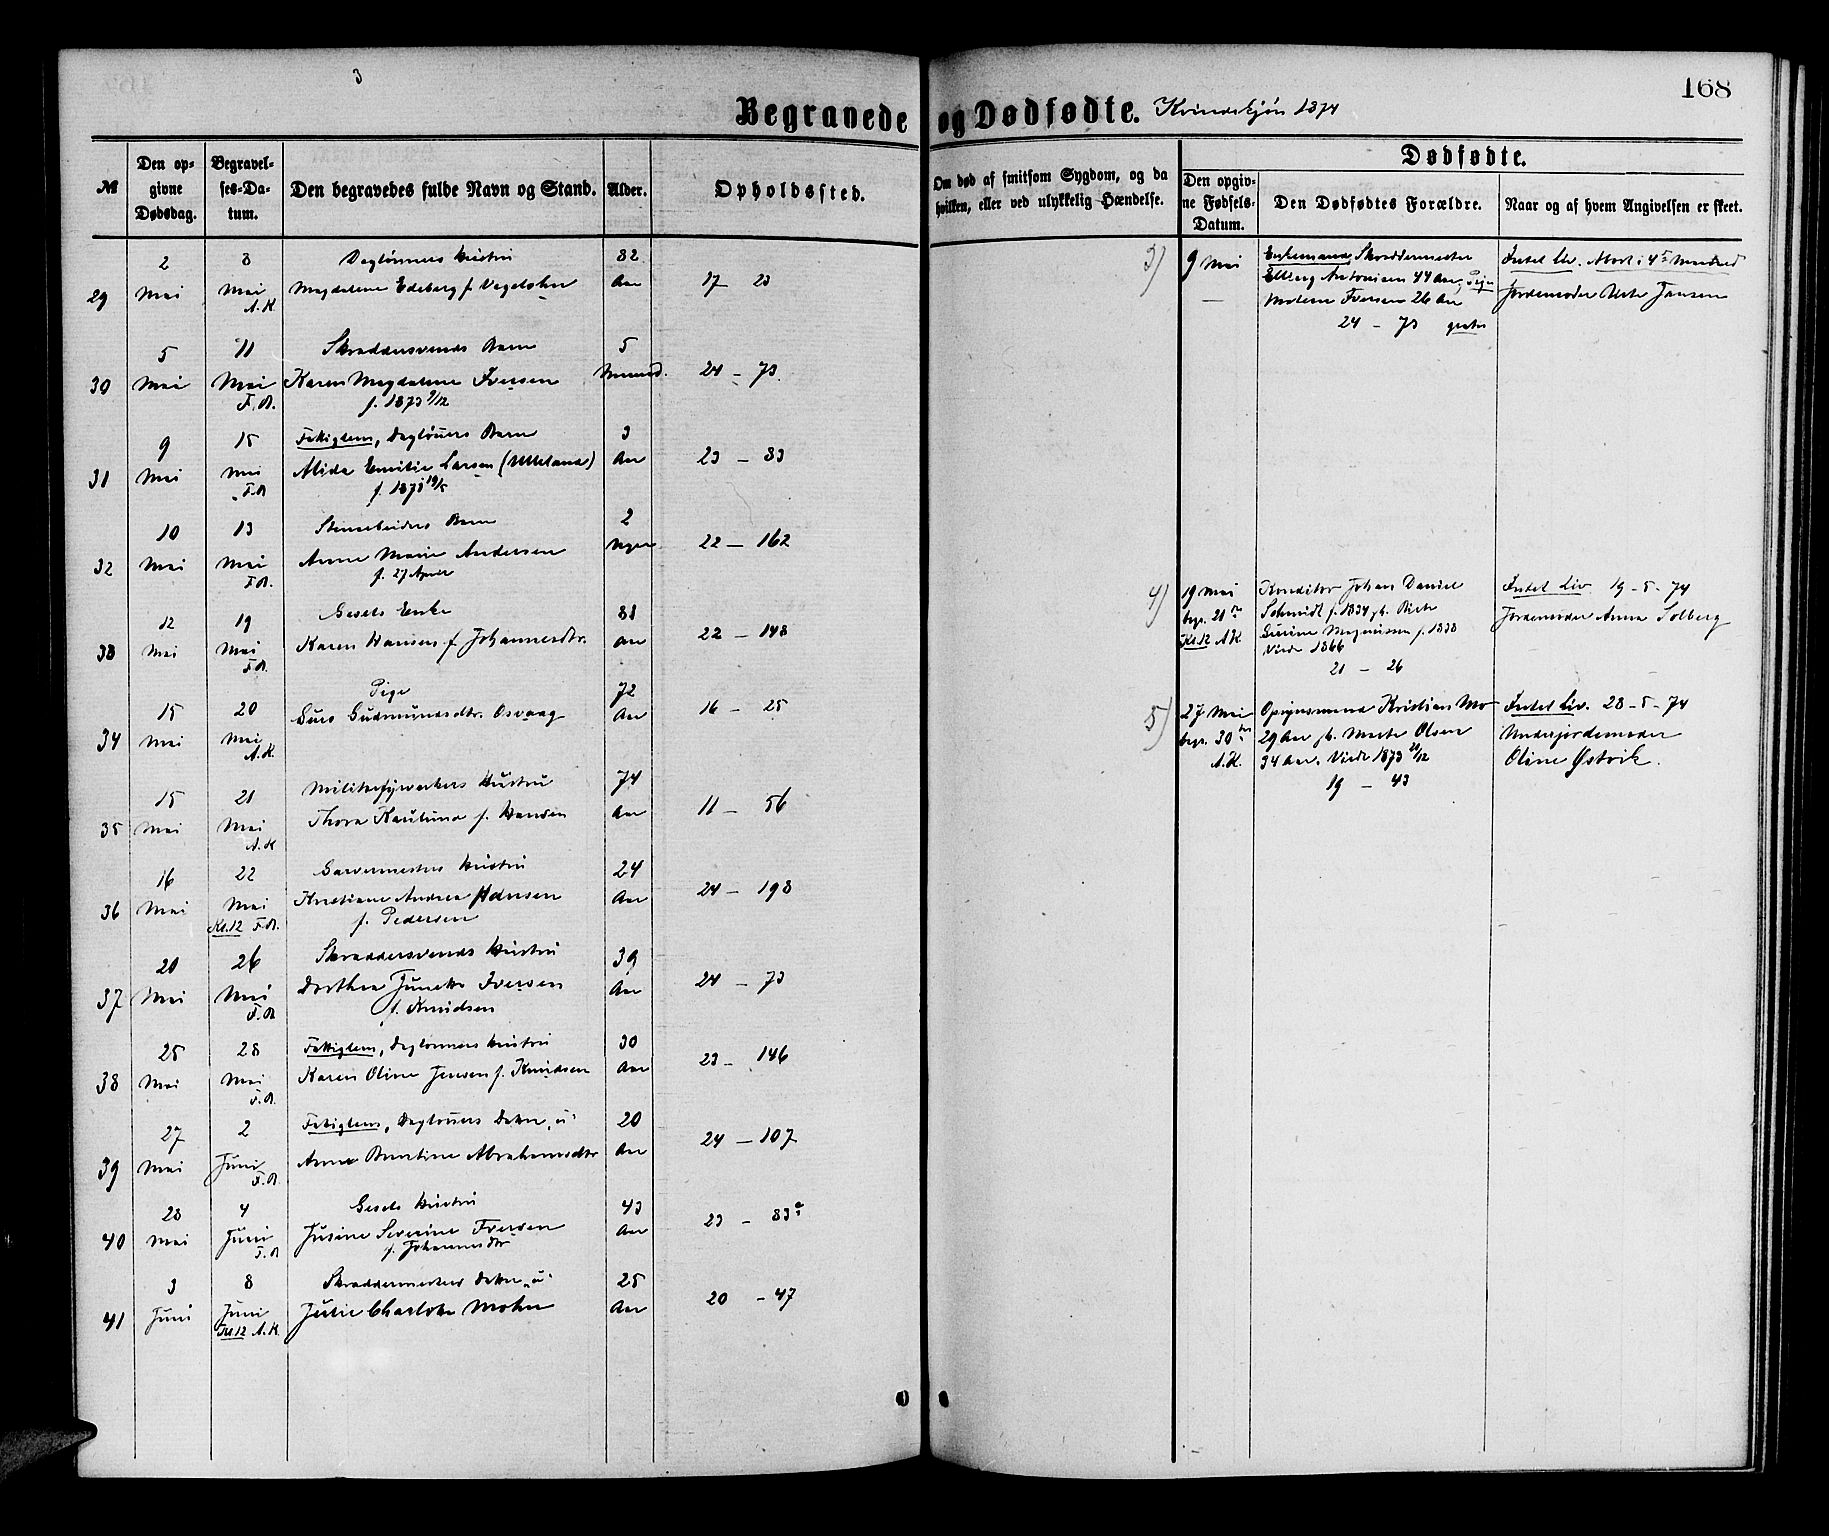 3
168
Begravede og Dødfødte. Kvindekjøn 1874
№
Den opgivne Dødsdag.
Begravelses-Datum.
Den begravedes fulde Navn og Stand.
Alder.
Opholdssted.
Om død af smitsom Sygdom, og da
hvilken, eller ved ulykkelig Hændelse.
Dødfødte.
Den opgivne Fødsels-Datum.
Den Dødfødtes Forældre.
Naar og af hvem Angivelsen er skeet.
2 8 Daglønners Hustru 82
29 Mai Mai Magdalene Edeberg f. Aar 17 23
A.K.
5 11 Skræddersvends Barn 5
30 Mai Mai Karen Magdalene Iversen Maaned. 24 – 73.
F.A. f. 1873 9/12
9 15 Fattiglem, Dagløners Barn 3
31 Mai Mai Alida Emilie Larsen (Ueland) Aar 23 – 83
F.A f. 1871 19/5
10 13 Barn 2
32 Mai Mai Anne Marie Andersen Uger 22 – 162
F.A. f. 27 April
12 19 Gesels Enke 81
33 Mai Mai Karen Hansen f. Johannesdtr. Aar 22 – 148
F.A.
15 20 Pige 72
34 Mai Mai Guro Gudmundsdtr. Osvaag Aar 16 – 25
A.K.
15 21 Hustru 74
35 Mai Mai Thora Kaulund f. Hansen Aar 11 – 56
A.K
16 22 Garvermesters Hustru 24
36 Mai Mai Kristiane Andrea Adnesen Aar 24 – 198
Kl.12 F.A. f. Pedersen
20 26 Skræddersvends Hustru 39
37 Mai Mai Dorthea Junette Iversen Aar 24 – 73
F.A f. Knudsen
25 28 Fattiglem, Daglønners Hustru 30
38 Mai Mai Karen Oline Jensen f. Knudsen Aar 23 – 146
F.A.
27 2 Fattiglem, Dagløners Datter, u 20
39 Mai Juni Anne Bertine Abrahamsdtr Aar 24 – 107
F.A.
28 4 Gesels Hustru 43
40 Mai Juni Josine Severine Iversen Aar 23 – 83a
F.A f. Johannesdtr
3 8 Skræddermesters Datter, u 25
41 Juni Juni Julie Charlotte Mohn Aar 20 – 47
Kl.12 A.K.
3) 9 Mai Enkemand Skræddermester Intet Liv. Abort i 4de Maaned
Elleng Antonisen 44 Aar, Pige Jordemoder Jansen
Malene Iversen 26 Aar
24 – 73 gratis
4) 19 Mai Konditor Johan Daniel Intet Liv 19-5-74
begr. 21de Schmidt f. 1834 g. Birte Jordemoder Anna Solberg
Kl.12 A.K Serine Magnussen f. 1838
Viede 1866
21 – 26
5) 27 Mai Opsynsmand Kristian Mo Intet Liv. 28-5-74
begr. 30te 29 Aar g. Marte Olsen Underjordemoder
A.K. 34 Aar. Viede 1873 21/12 Oline Østvik.
19 – 43